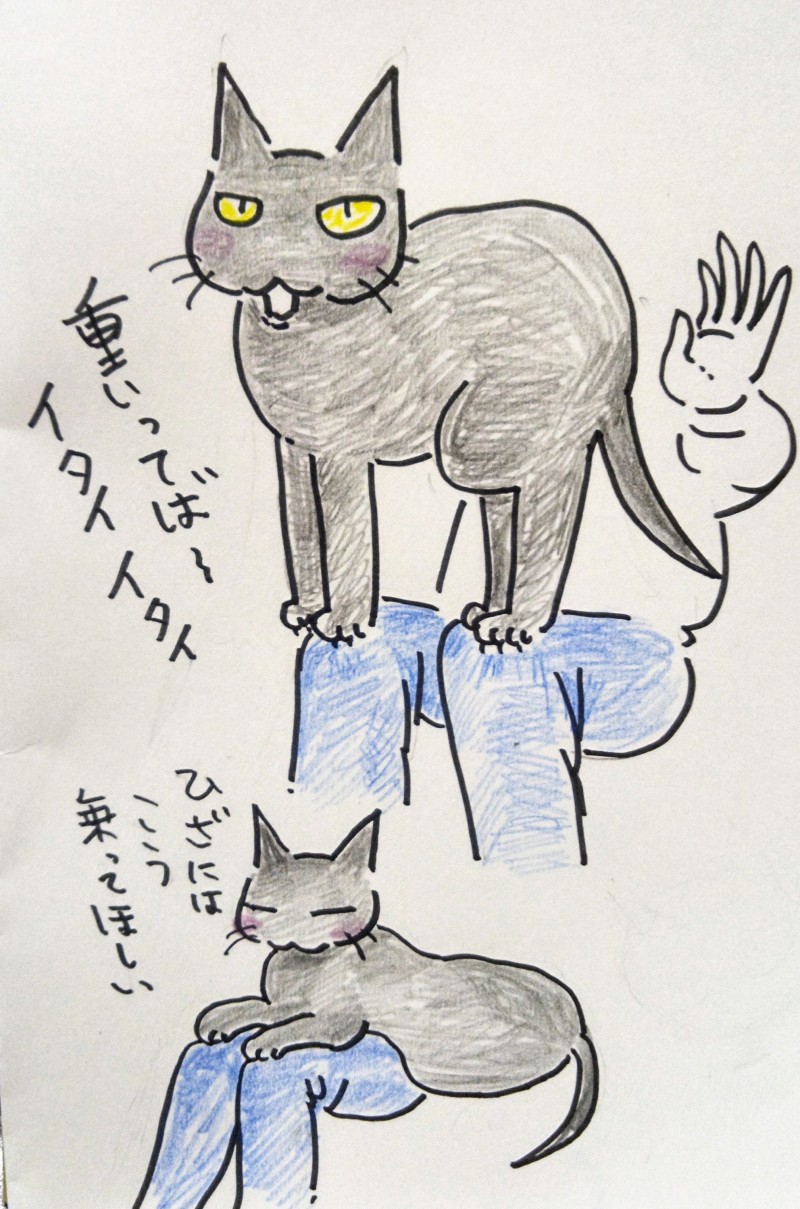 重いってば〜
イタイ イタイ
ひざには
こう
乗ってほしい